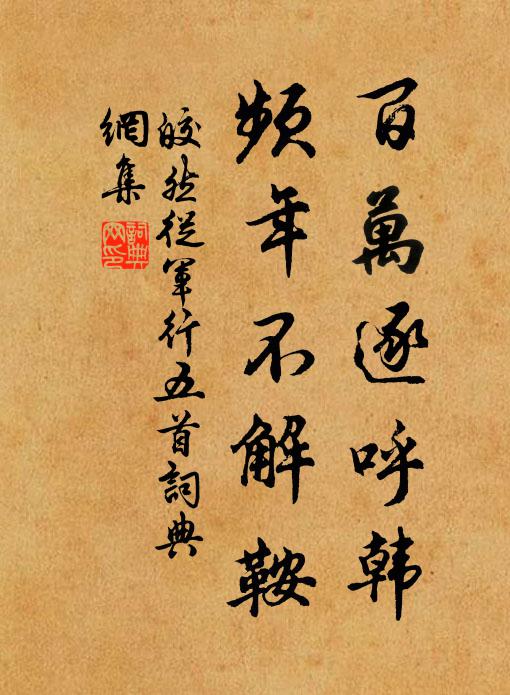 百萬逐呼韩
頻年不解鞍
皎然從軍行五首詞典
網集
詞典網印